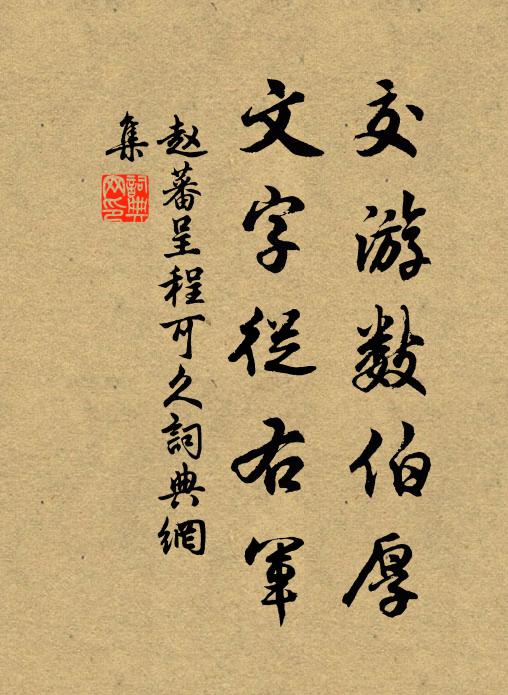 交游数伯厚
文字從右軍
赵蕃呈程可久詞典網
集
詞典
网印